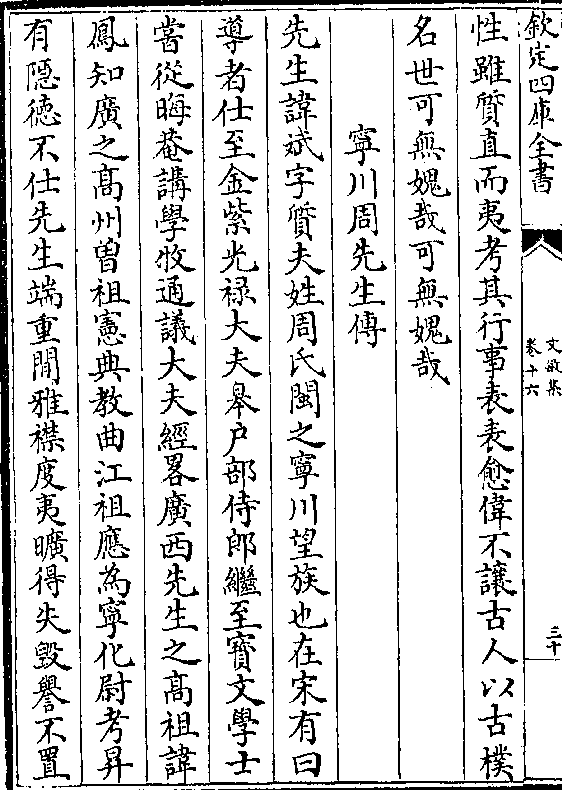 欽定四庫全書
文敏集
卷十六
三十
性雖質直而夷考其行事表表愈偉不讓古人以古樸
名世可無媿哉可無媿哉
寧川周先生傳
先生諱斌字質夫姓周氏閩之寧川望族也在宋有曰
導者仕至金紫光禄大夫皋户部侍郎繼至寳文學士
嘗從晦菴講學牧通議大夫經畧廣西先生之髙祖諱
鳳知廣之髙州曽祖憲典教曲江祖應為寧化尉考昇
有隠徳不仕先生端重閒雅襟度夷曠得失毁譽不置